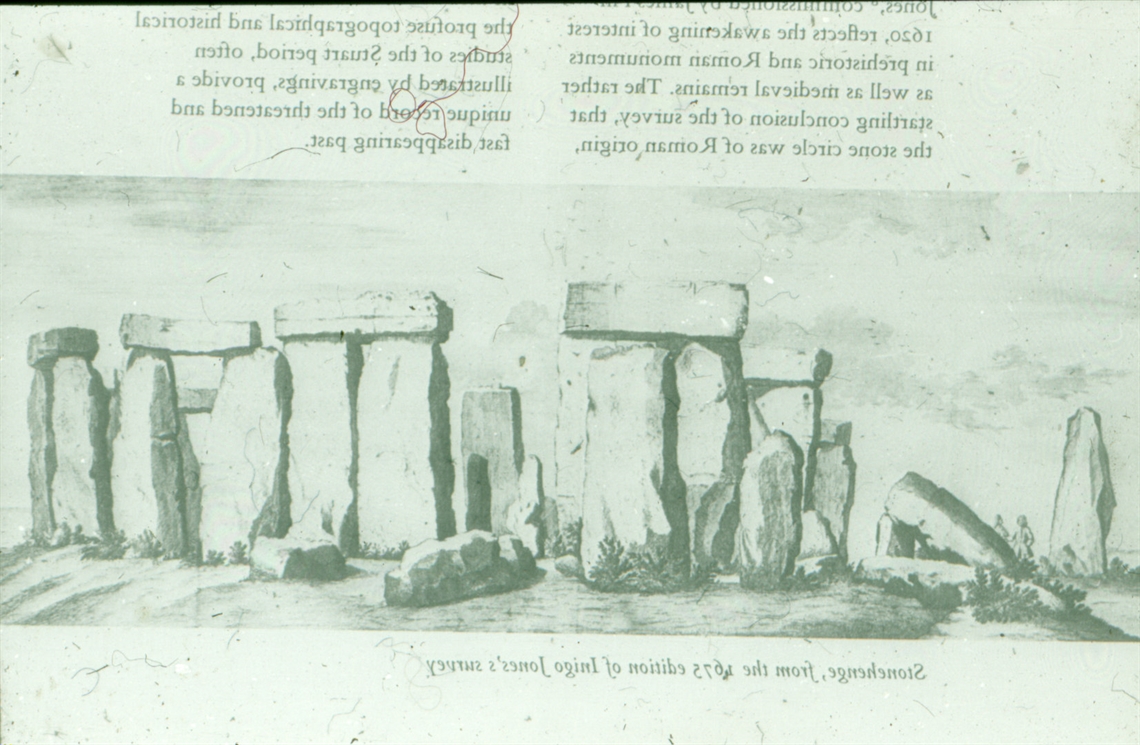 Jones, commissioned by James I
1620, reflects the awakening of interest
in prehistoric and Roman monuments
as well as medieval remains. The rather
startling conclusion of the survey, that
the stone circle was of Roman origin,
the profuse topographical and historical
studies of the Stuart period, often
illustrated by engravings, provide a
unique record of the threatened and
fast disappearing past.
Stonehenge, from the 1675 edition of Inigo Jones's survey